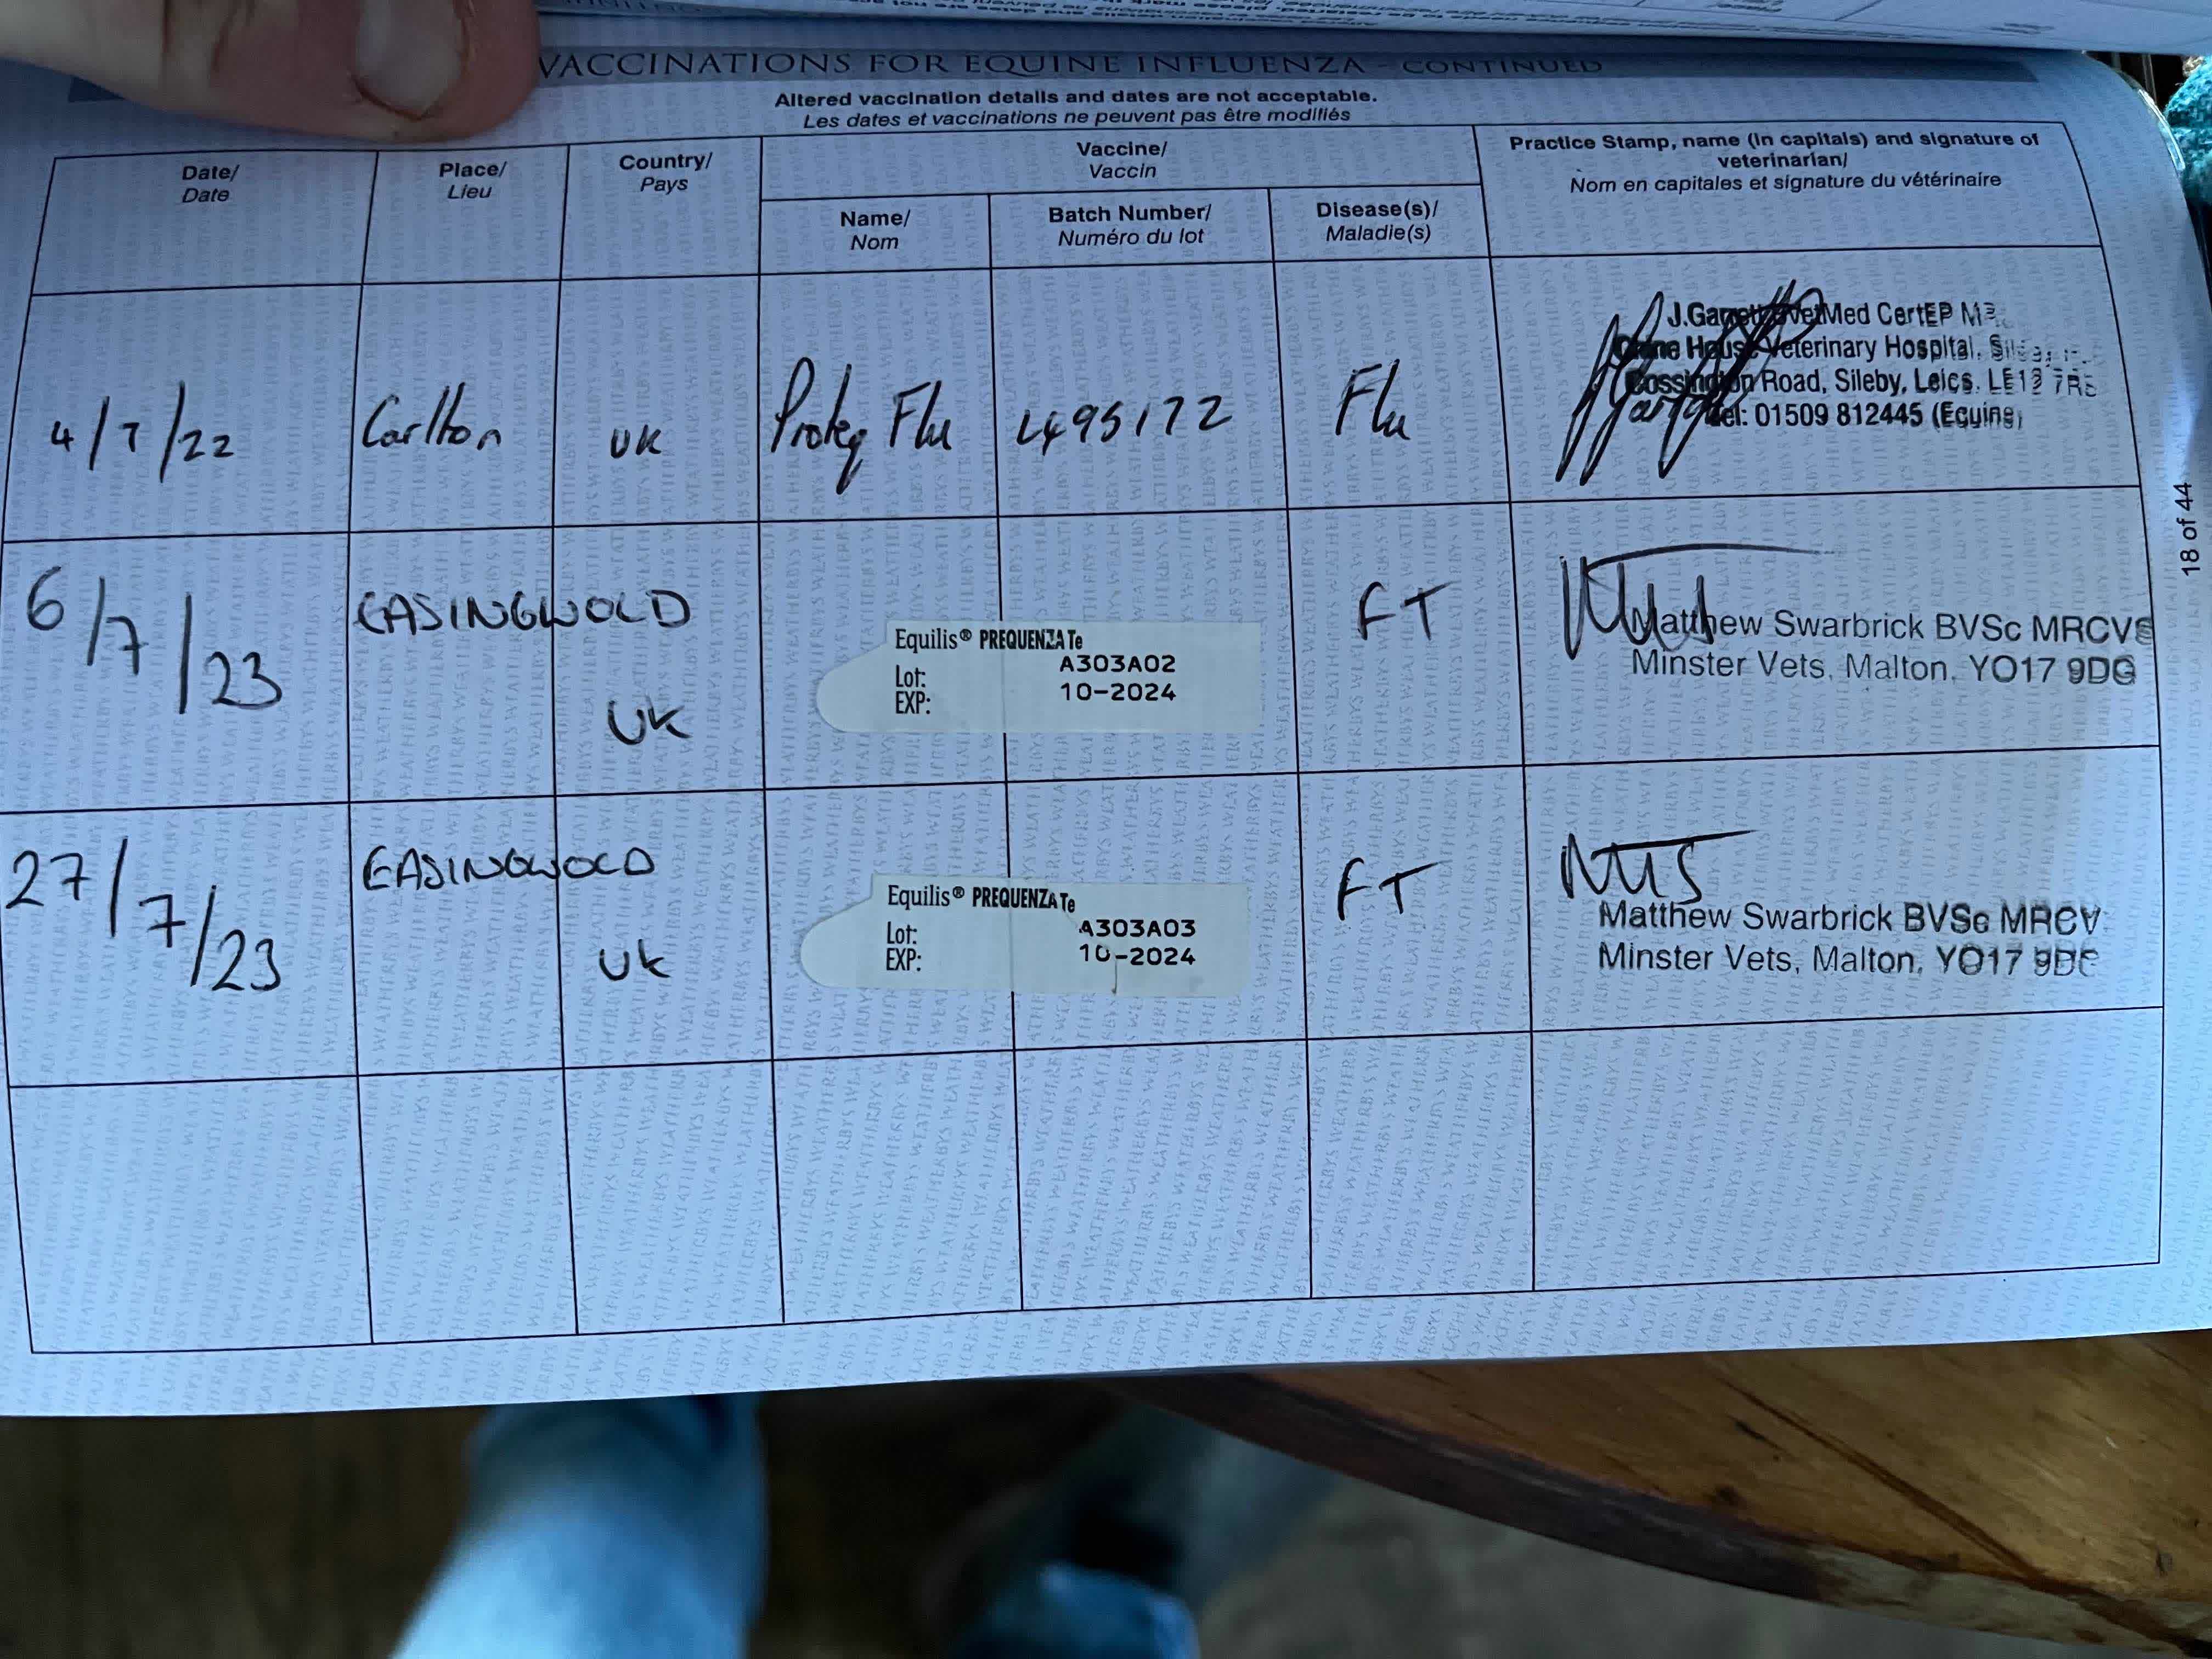 VACCINATIONS FOR EQUINE INFLUENZA - CONTINUED
Altered vaccination details and dates are not acceptable.
Les dates et vaccinations ne peuvent pas être modifiés
Date/
Date
Place/
Lieu
Country/
Pays
Vaccine/
Vaccin
Name/
Nom
Batch Number/
Numéro du lot
Disease(s)/
Maladie(s)
Practice Stamp, name (in capitals) and signature of
veterinarian/
Nom en capitales et signature du vétérinaire
4/7/22
Carlton
UK
Proteq Flu
L495172
Flu
VetMed CertEP
House Veterinary Hospital,
Cossington Road, Sileby, Leics. LE12
Tel: 01509 812445 (Equine)
6/7/23
EASINGWOLD
UK
Equilis® PREQUENZA Te
Lot: A303A02
EXP: 10-2024
FT
Matthew Swarbrick BVSc MRCVS
Minster Vets, Malton, YO17 9DG
27/7/23
EASINGWOLD
UK
Equilis® PREQUENZA Te
Lot: A303A03
EXP: 10-2024
FT
Matthew Swarbrick BVSc MRCV
Minster Vets, Malton, YO17
18 of 44